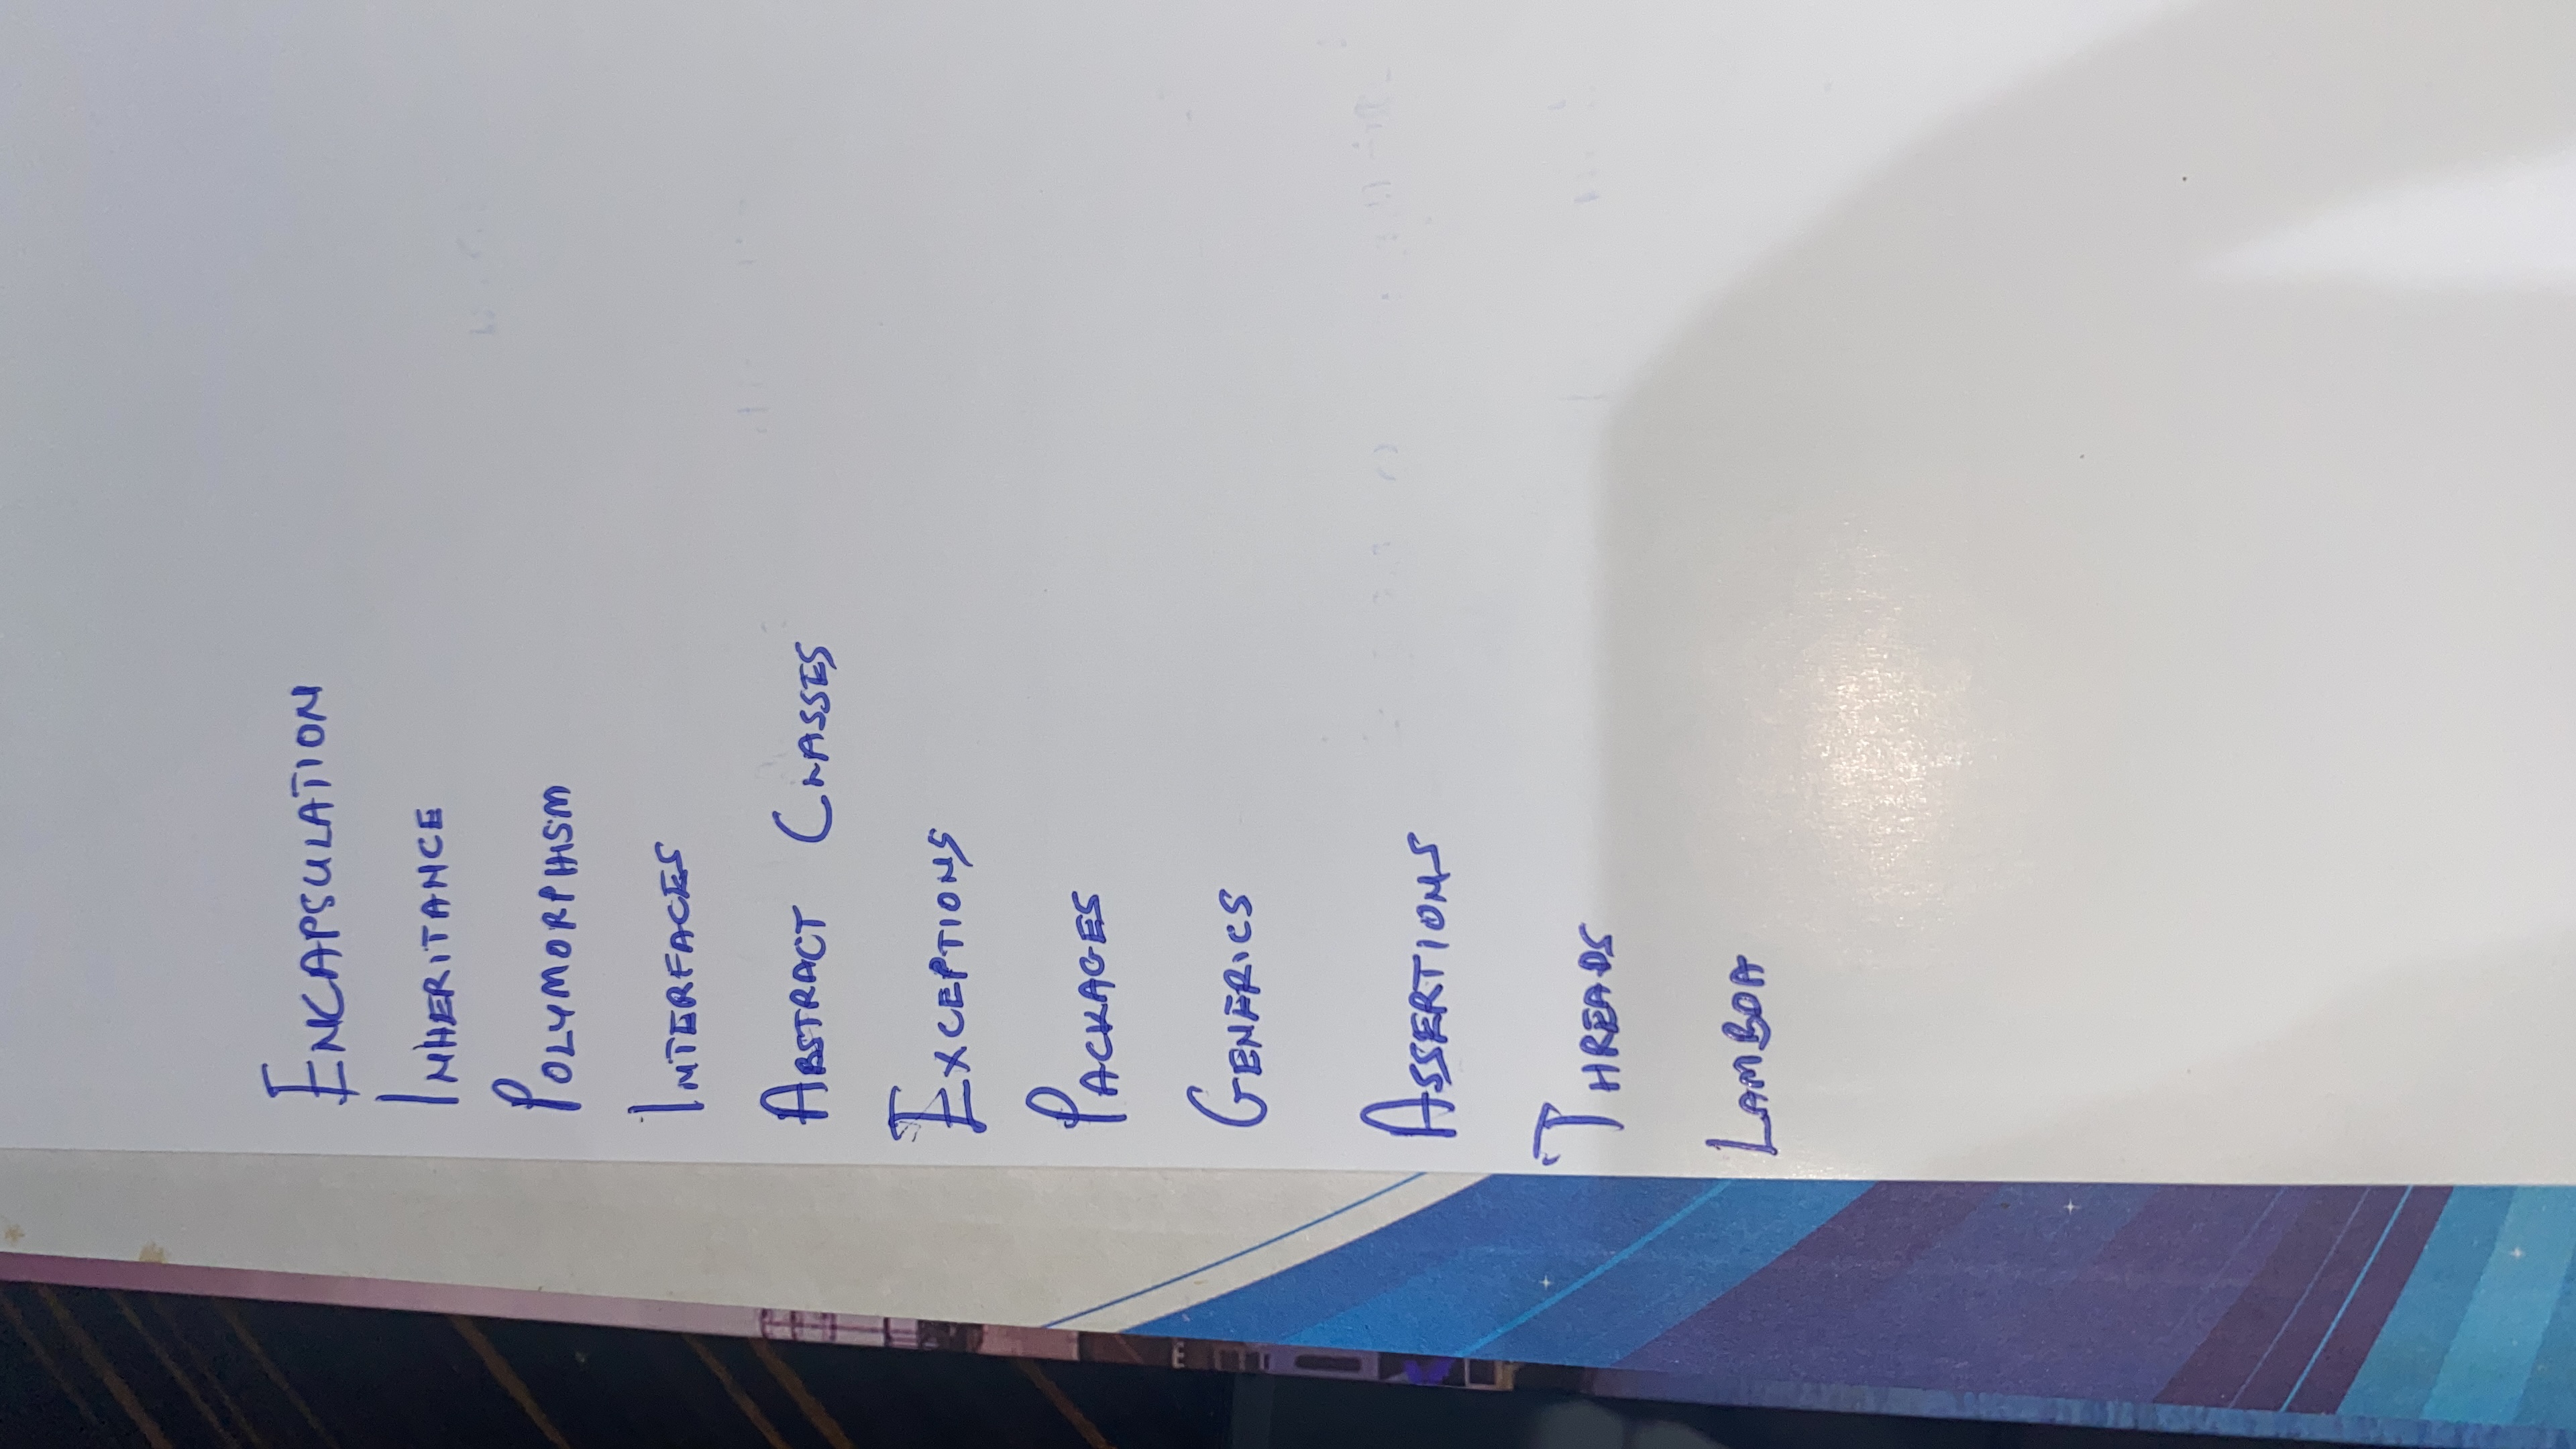 ENCAPSULATION
INHERITANCE
POLYMORPHISM
INTERFACES
ABSTRACT CLASSES
EXCEPTIONS
PACKAGES
GENERICS
ASSERTIONS
THREADS
LAMBDA